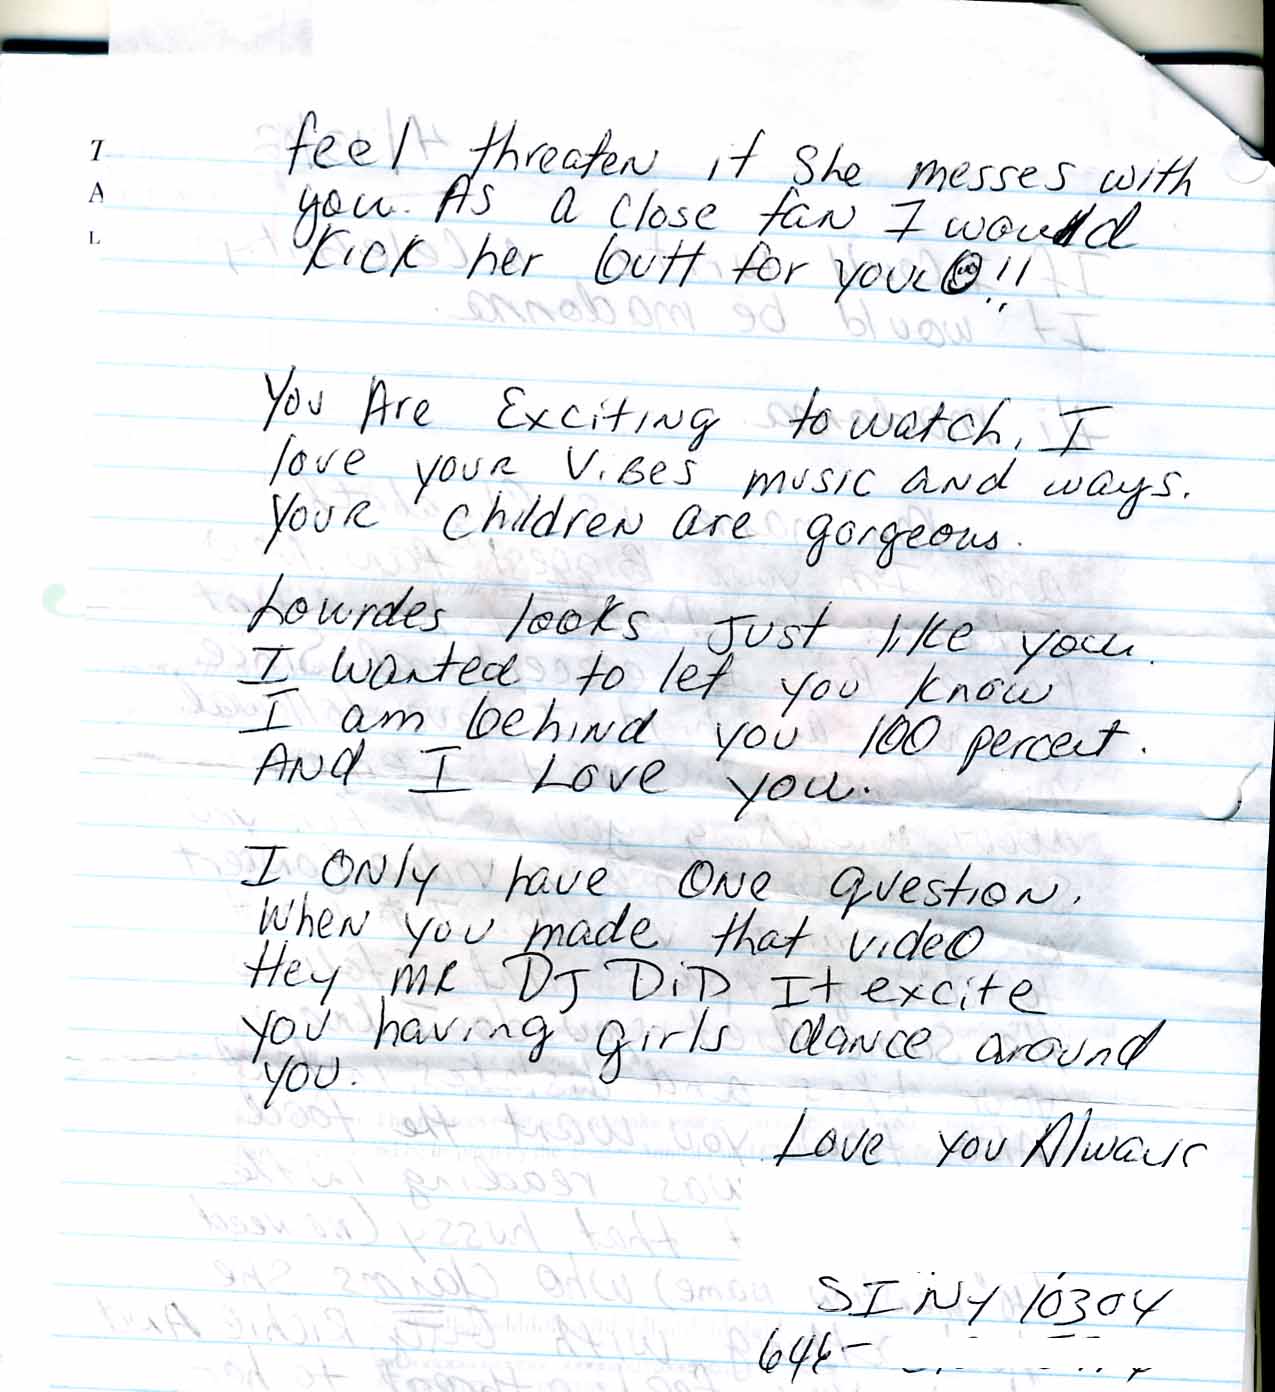 T
A
L
feel threaten if She messes with
you. As a close fan I would
Kick her butt for you !!
You Are Exciting to watch, I
love your Vibes music and ways.
Your children are gorgeous.
Lourdes looks Just like you.
I wanted to let you know
I am behind you 100 percent.
And I Love you.
I ONly have ONE question.
When you made that video
Hey MR DJ DiD It excite
you having girls dance around
you.
Love you Always
SI NY 10304
646-